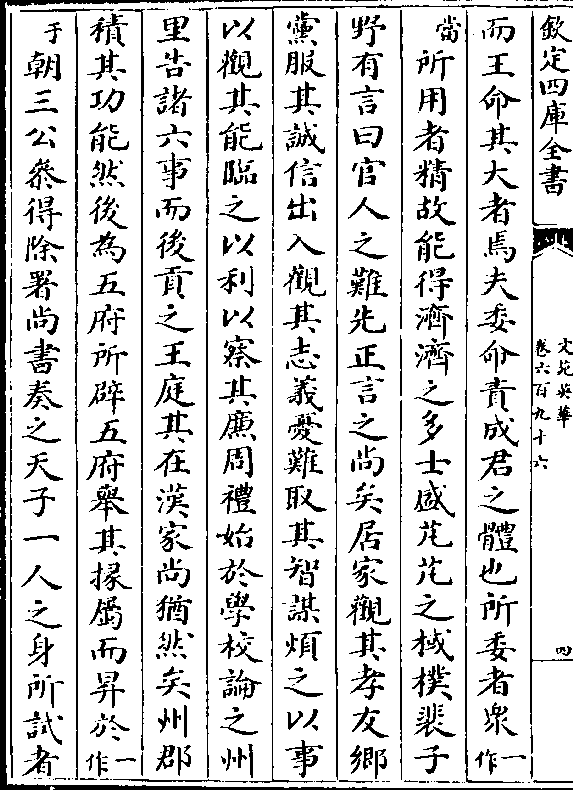 欽定四庫全書
文苑英華
卷六百九十六
四
而王命其大者焉夫委命責成君之體也所委者眾一作
當所用者精故能得濟濟之多士盛芃芃之棫樸裴子
野有言曰官人之難先正言之尚矣居家觀其孝友鄉
黨服其誠信出入觀其志義憂難取其智謀煩之以事
以觀其能臨之以利以察其廉周禮始於學校論之州
里告諸六事而後貢之王庭其在漢家尚猶然矣州郡
積其功能然後為五府所辟五府舉其掾屬而昇於一作
于朝三公叅得除署尚書奏之天子一人之身所試者